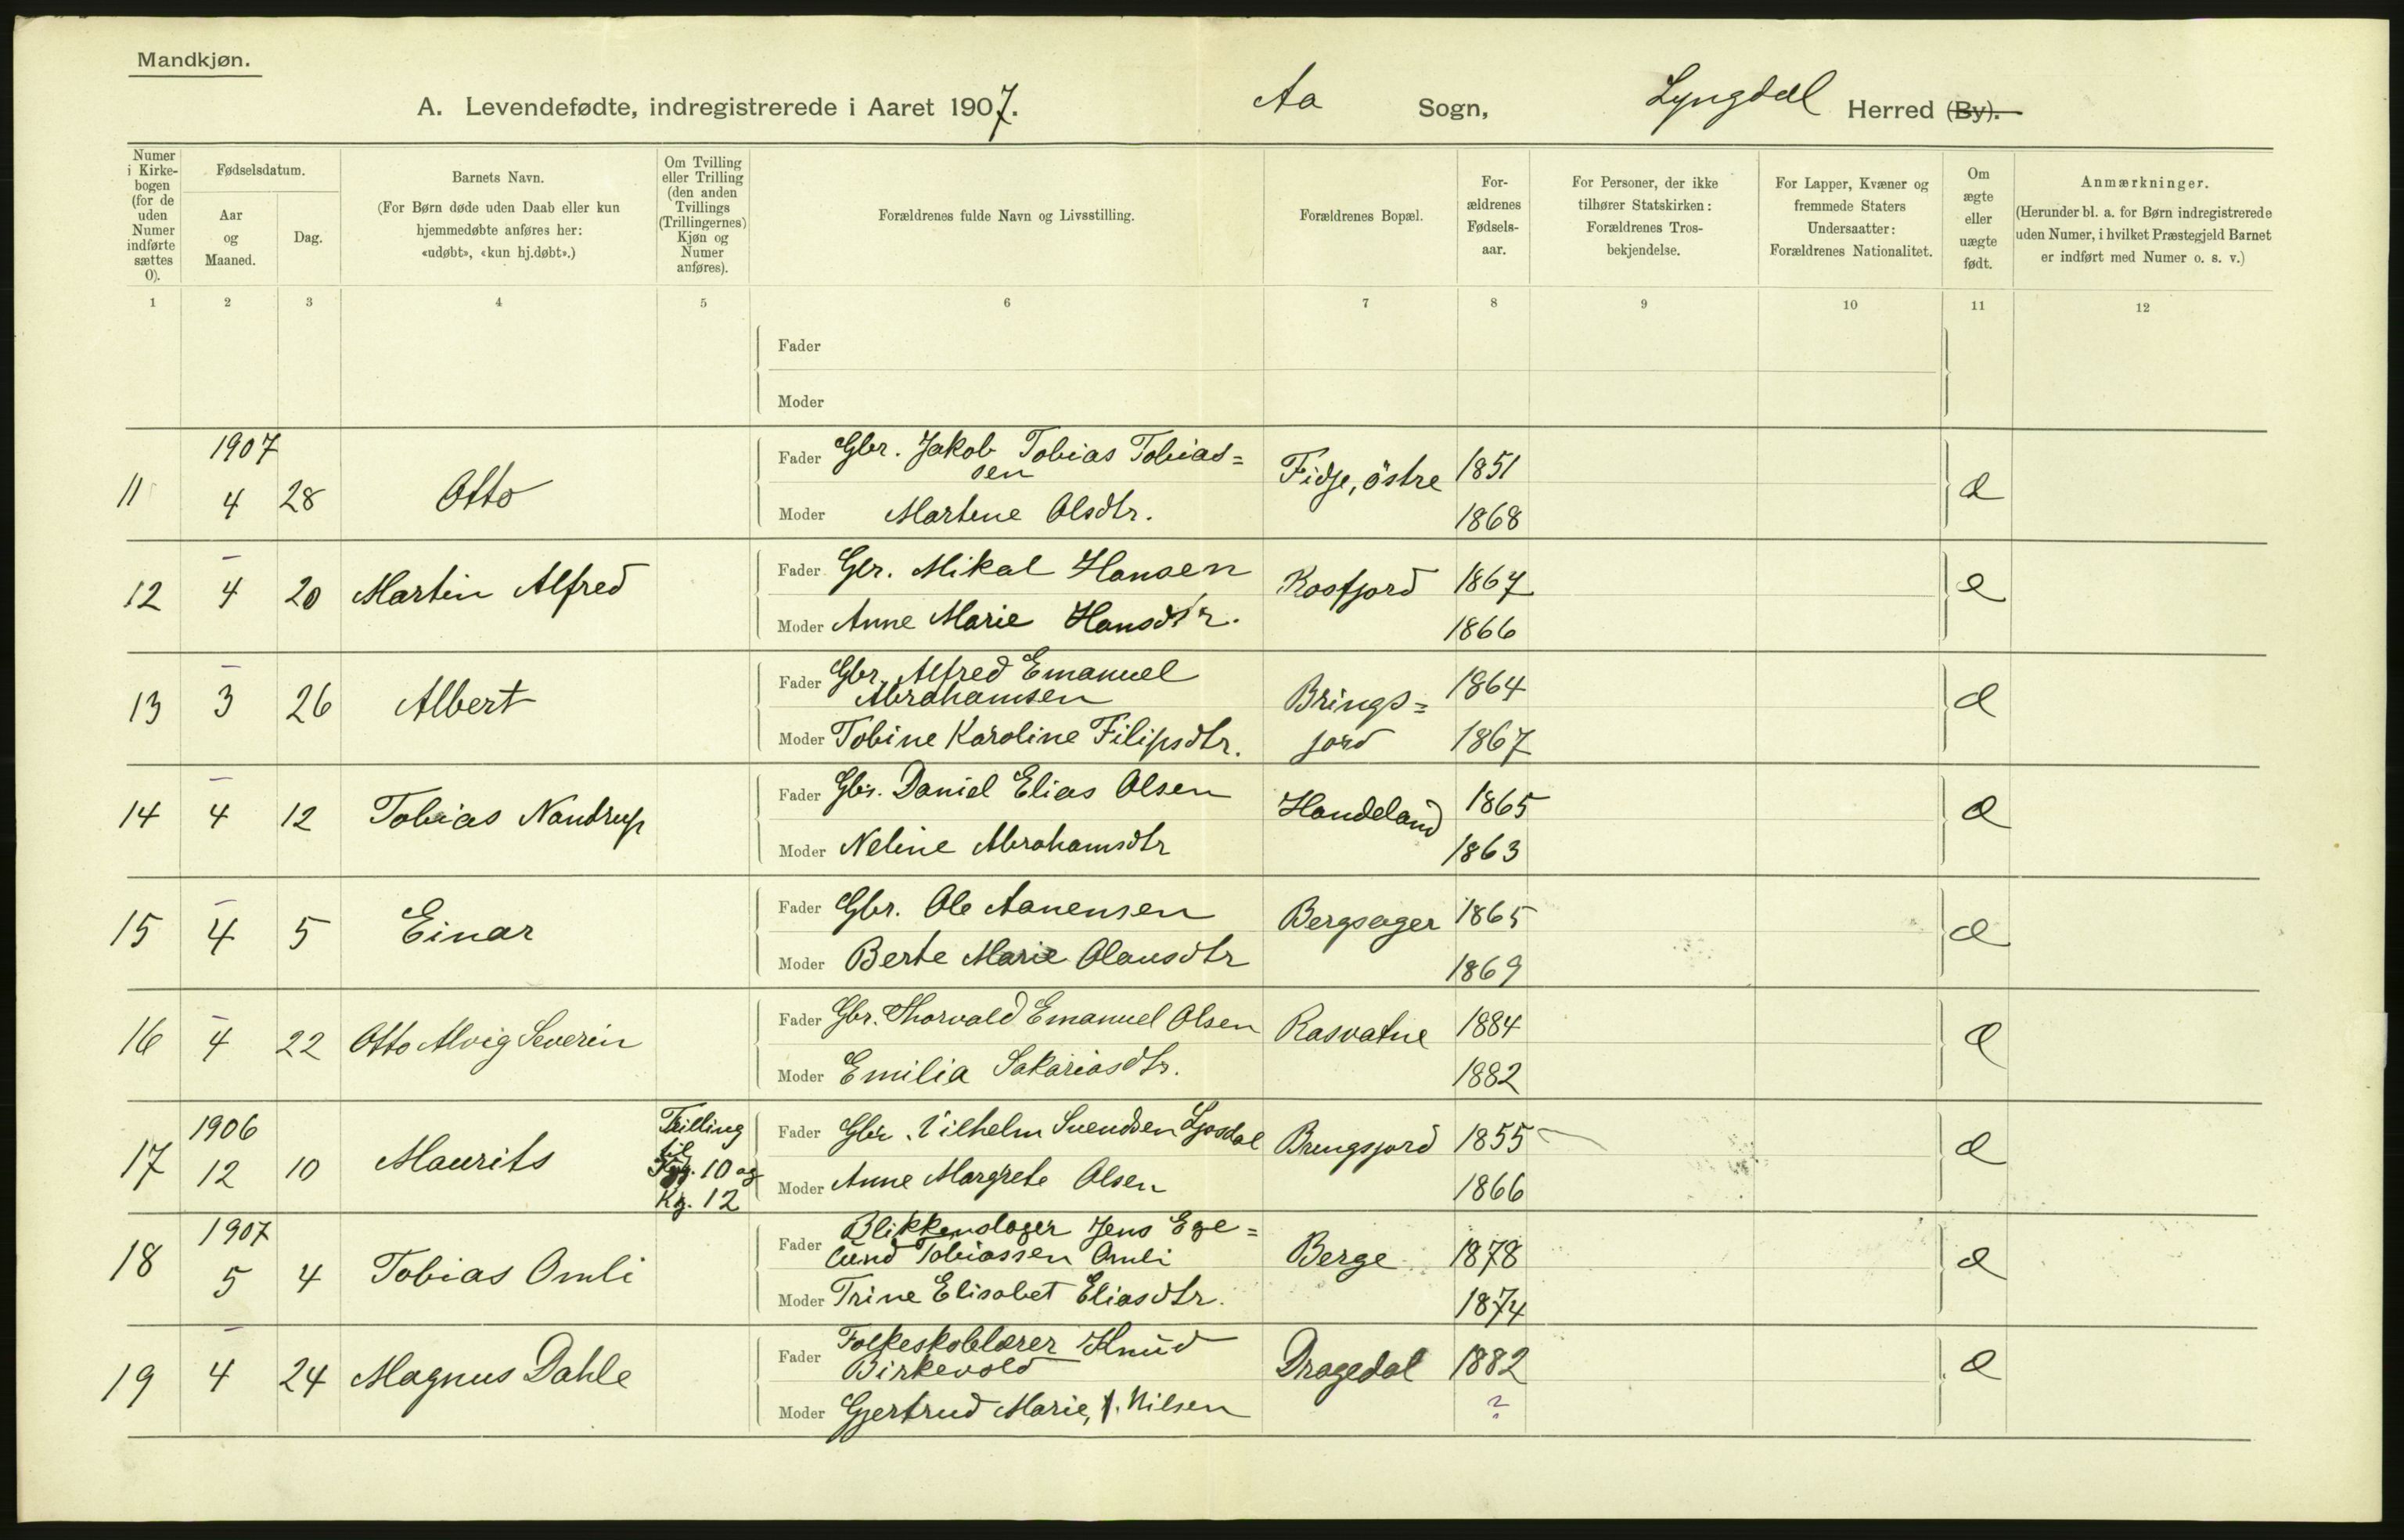 Mandkjøn.
A. Levendefødte, indregistrerede i Aaret 1907. Aa Sogn, Lyngdal Herred (By).
Numer i Kirkebogen (for de uden Numer indførte sættes 0).
Fødselsdatum.
Aar og Maaned.
Dag.
Barnets Navn.
(For Børn døde uden Daab eller kun hjemmedøbte anføres her: «udøbt», «kun hj.døbt».)
Om Tvilling eller Trilling (den anden Tvillings (Trillingernes) Kjøn og Numer anføres).
Forældrenes fulde Navn og Livsstilling.
Forældrenes Bopæl.
For-ældrenes Fødsels-aar.
For Personer, der ikke tilhører Statskirken: Forældrenes Tros-bekjendelse.
For Lapper, Kvæner og fremmede Staters Undersaatter: Forældrenes Nationalitet.
Om ægte eller uægte født.
Anmærkninger.
(Herunder bl. a. for Børn indregistrerede uden Numer, i hvilket Præstegjeld Barnet er indført med Numer o. s. v.)
1 2 3 4 5 6 7 8 9 10 11 12
Fader
Moder
11 1907 4 28 Otto Fader Gbr. Jakob Tobias Tobias=
sen Fidje, östre 1851 æ
Moder Martene Olsdtr. 1868
12 – 4 20 Martin Alfred Fader Gbr. Mikal Hansen Rosfjord 1867 æ
Moder Anne Marie Hansdtr. 1866
13 – 3 26 Albert Fader Gbr. Alfred Emanuel
Abrahamsen Brings= 1864 æ
Moder Tobine Karoline Filipsdtr. jord 1867
14 – 4 12 Tobias Nandrup Fader Gbr. Daniel Elias Olsen Handeland 1865 æ
Moder Neline Abrahamsdtr 1863
15 – 4 5 Einar Fader Gbr. Ole Aanensen Bergsager 1865 æ
Moder Berte Marie Olausdtr 1869
16 – 4 22 Otto Alvig Severin Fader Gbr. Thorvald Emanuel Olsen Rasvatne 1884 æ
Moder Emilia Sakariasdtr. 1882
17 1906 12 10 Maurits Trilling
til
10 og
Kv. 12
Fader Gbr. Vilhelm Svendsen Ljosdal Bringsjord 1855 æ
Moder Anne Margrete Olsen 1866
18 1907 5 4 Tobias Omli Fader Blikkenslager Jens Ege=
lund Tobiassen Omli Berge 1878 æ
Moder Trine Elisabet Eliasdtr. 1874
19 – 4 24 Magnus Dahle Fader Folkeskolelærer Knud
Birkevold Dragedal 1882 æ
Moder Gjertrud Marie, f. Nilsen ?